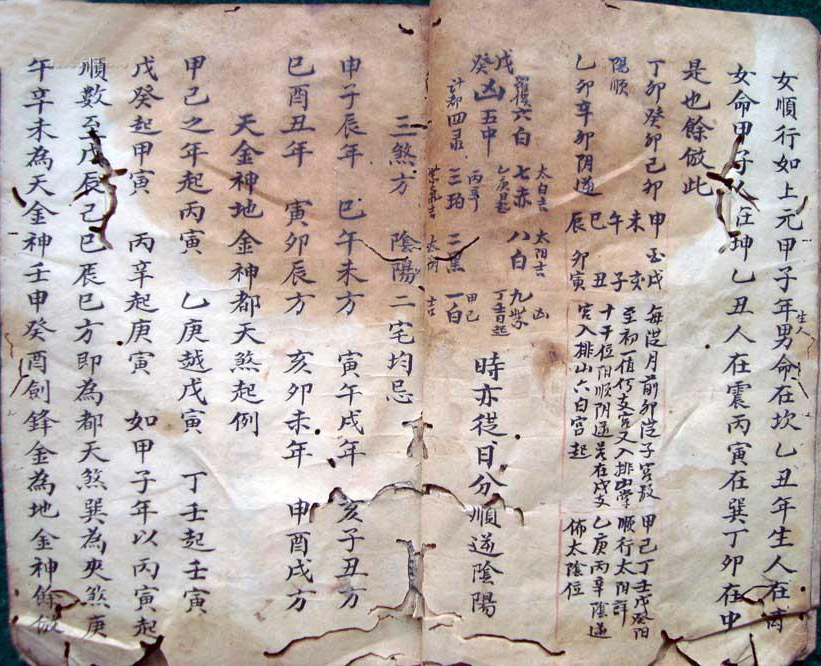 女順行如上元甲子年男命在坎乙丑年生人在离
生人
女命甲子人在坤乙丑人在震丙寅在巽丁卯在中
是也餘倣此
丁卯癸卯己卯
陽順
乙卯辛卯阴逆
申 酉戌
未 亥
午 子
巳 丑
辰 卯寅
每從月前卯從子宮数
至初一值何支宮又入排山掌
十干位阳順阴逆
宮入排山六白宮起
甲己丁壬戊癸阳
順行太阳詳
乙庚丙辛陰逆
佈太陰位
太白吉
太阳吉
凶
戊癸
羅睺六白
乙庚
七赤
八白
丁壬日起
九紫
凶五中
丙辛
計都四录
三碧
二黑
甲己
一白
紫氣吉
吉
時亦從日分順逆陰陽
三煞方 陰陽二宅均忌
申子辰年 巳午未方 寅午戌年 亥子丑方
巳酉丑年 寅卯辰方 亥卯未年 申酉戌方
天金神地金神都天煞起例
甲己之年起丙寅 乙庚越戊寅 丁壬起壬寅
戊癸起甲寅 丙辛起庚寅 如甲子年以丙寅起
順數至戊辰己巳辰巳方即為都天煞巽為夾煞庚
午辛未為天金神壬申癸酉劍鋒金為地金神餘倣